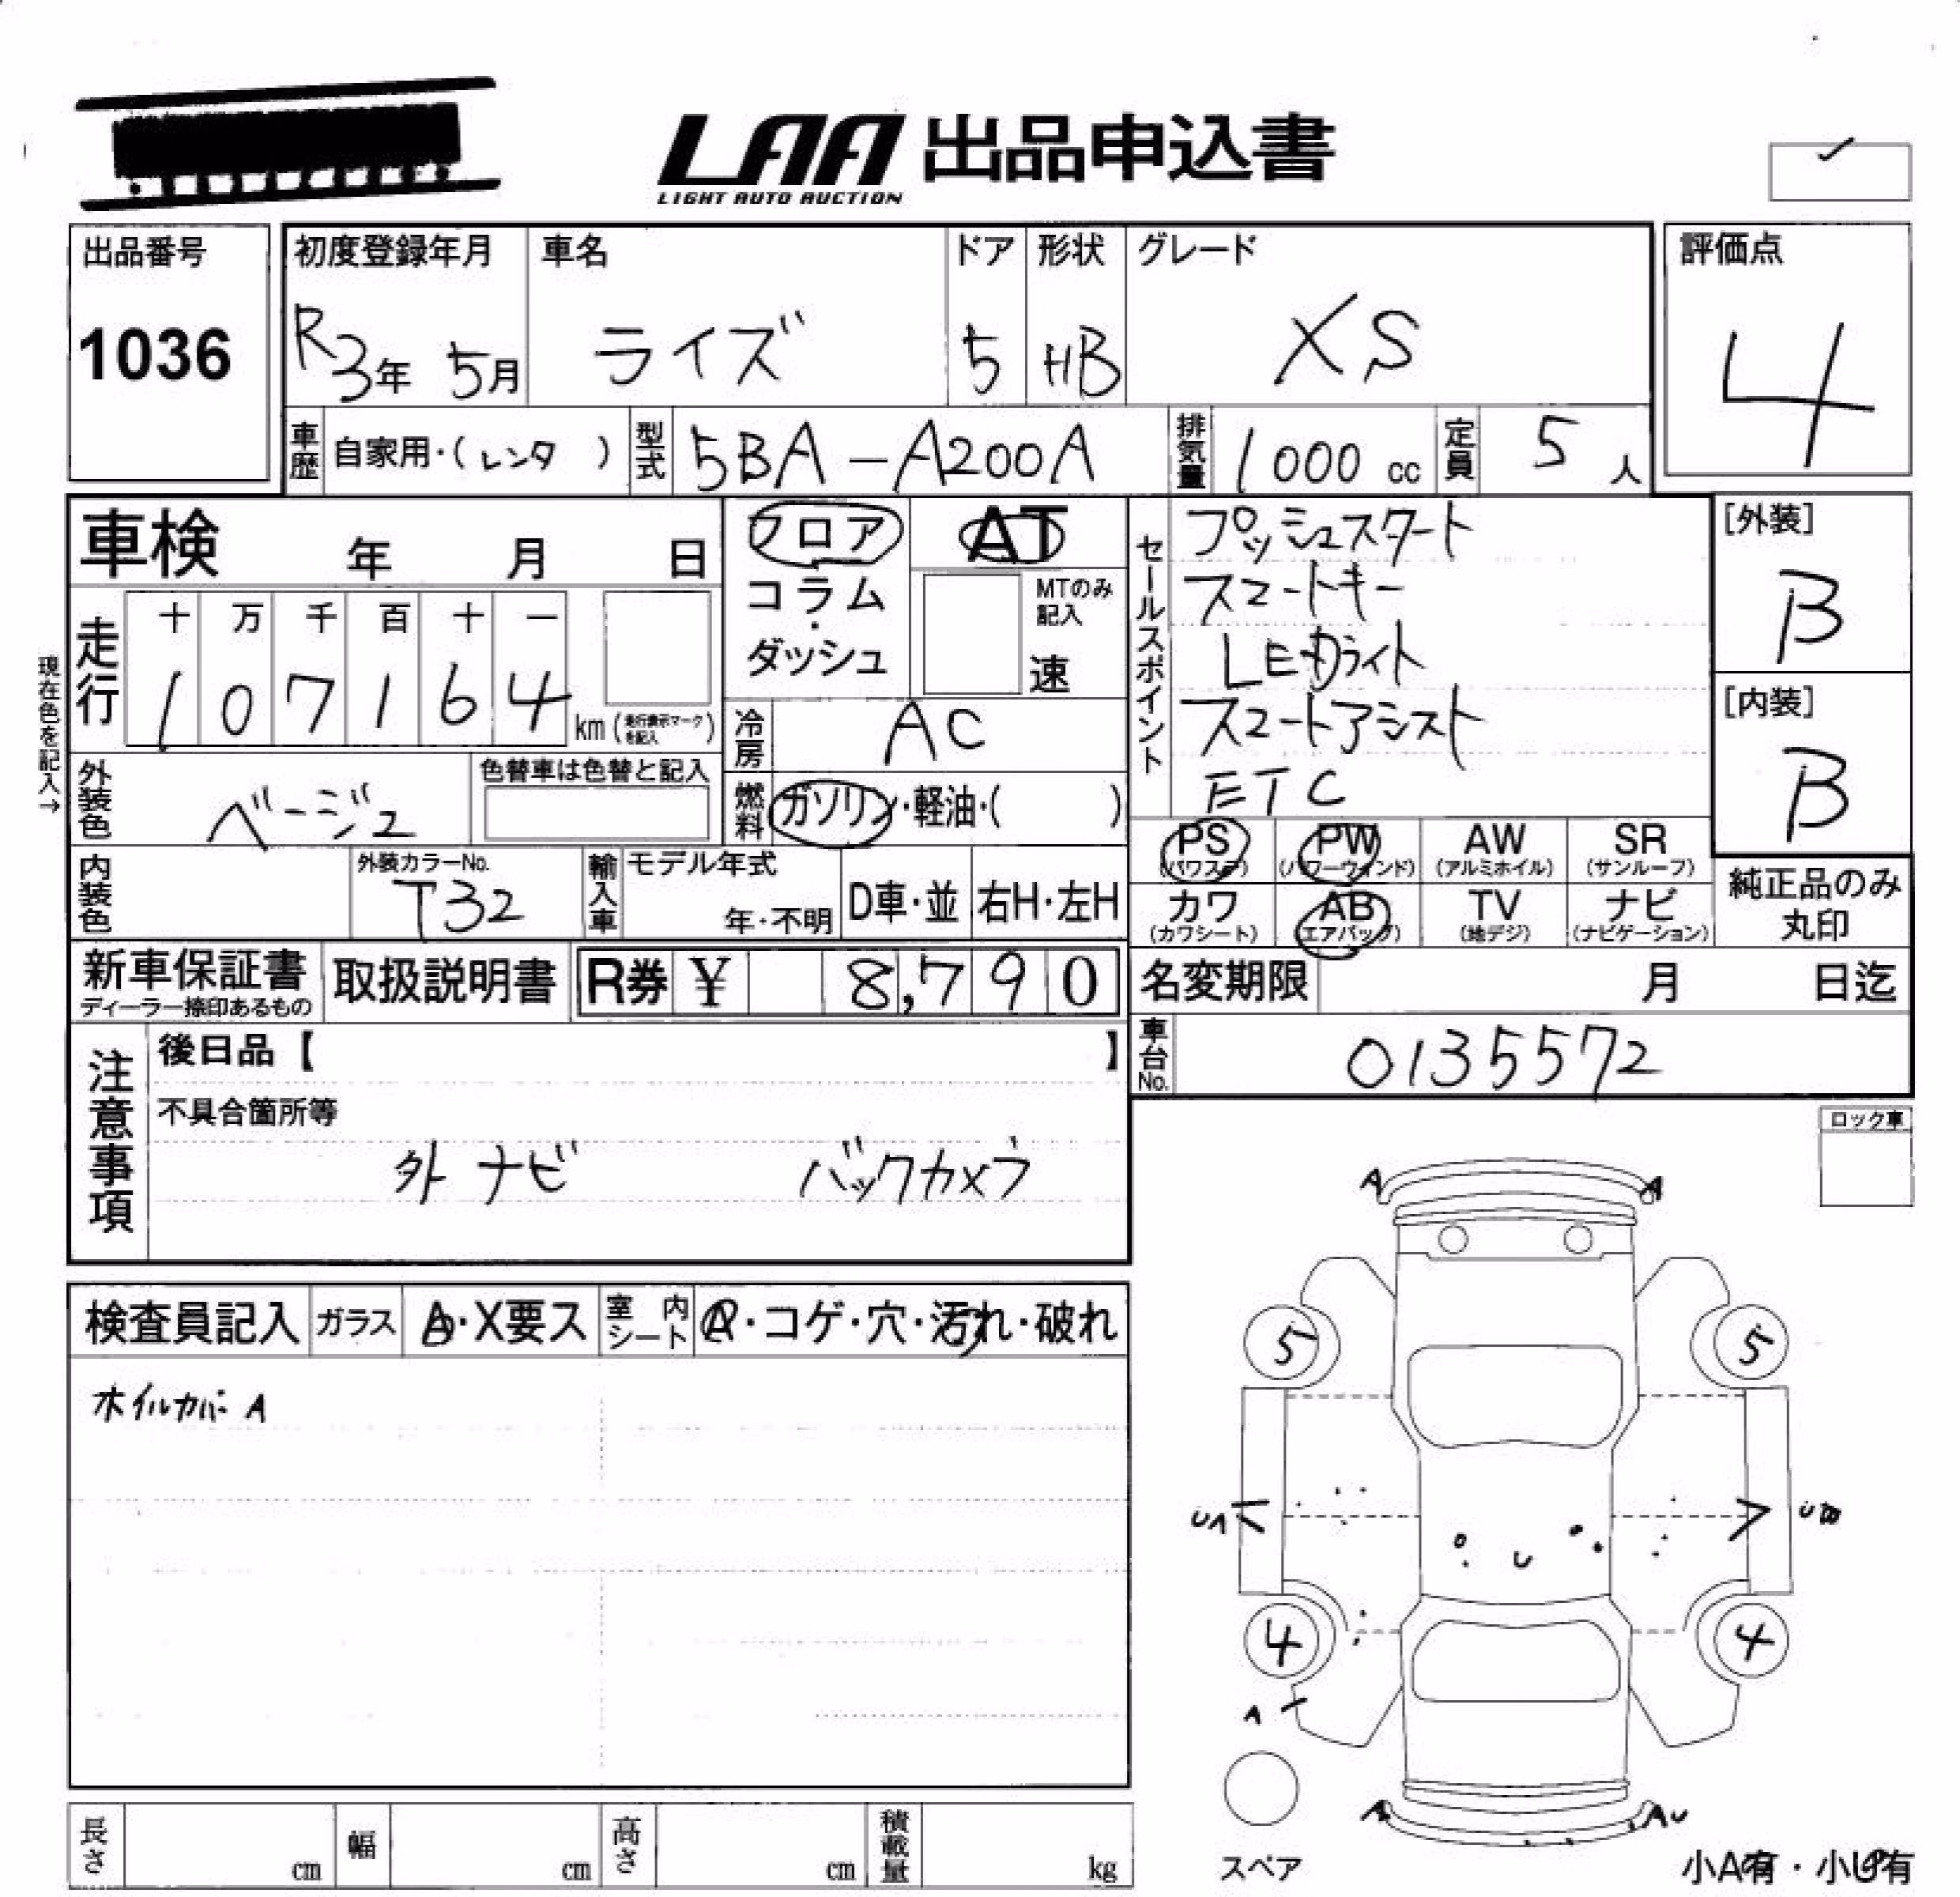 LAA 出品申込書
LIGHT AUTO AUCTION
出品番号
1036
初度登録年月
R3年 5月
車名
ライズ
ドア
5
形状
HB
グレード
XS
評価点
4
車歴
自家用・(レンタ)
型式
5BA-A200A
排気量
1000 cc
定員
5人
車検 年 月 日
フロア
コラム
・
ダッシュ
AT
MTのみ
記入
速
セールスポイント
プッシュスタート
スマートキー
LEDライト
スマートアシスト
ETC
[外装]
B
[内装]
B
現在色を記入→
走行
十 万 千 百 十 一
1 0 7 1 6 4
km (走行表示マークを記入)
冷房
AC
外装色
ベージュ
色替車は色替と記入
燃料
ガソリン・軽油・( )
PS
(パワステ)
PW
(パワーウィンド)
AW
(アルミホイル)
SR
(サンルーフ)
カワ
(カワシート)
AB
(エアバック)
TV
(地デジ)
ナビ
(ナビゲーション)
純正品のみ
丸印
内装色
外装カラーNo.
T32
輸入車
モデル年式
年・不明
D車・並
右H・左H
新車保証書
ディーラー捺印あるもの
取扱説明書
R券 ¥ 8,790
名変期限 月 日迄
車台No.
0135572
注意事項
後日品【 】
不具合箇所等
外 ナビ バックカメラ
ロック車
検査員記入
ガラス
A・X要ス
室内
シート
A・コゲ・穴・汚れ・破れ
ホイルカバー A
A A
5 5
UA UB
U
4 4
A
A AU
スペア
小A有・小U有
長さ cm
幅 cm
高さ cm
積載量 kg